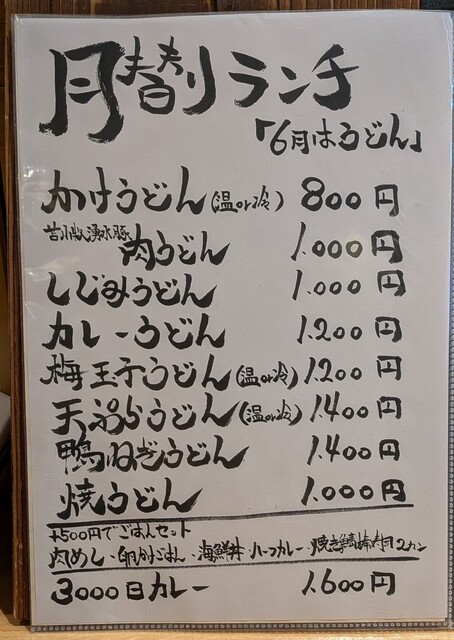 月替りランチ
「6月はうどん」
かけうどん(温or冷) 800円
苫小牧湧水豚 肉うどん 1.000円
しじみうどん 1.000円
カレーうどん 1.200円
梅玉子うどん(温or冷) 1.200円
天ぷらうどん(温or冷) 1.400円
鴨ねぎうどん 1.400円
焼うどん 1.000円
+500円でごはんセット
肉めし・卵かけごはん・海鮮丼・ハーフカレー・焼き鯖棒寿司2カン
3000日カレー 1.600円